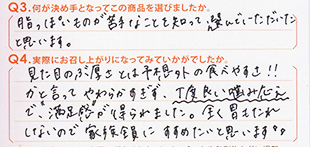 Q3.何が決め手となってこの商品を選びましたか。
脂っぽいものが苦手なことを知って、選んでいただいた
と思います。
Q4.実際にお召し上がりになってみていかがでしたか。
見た目のぶ厚さとは予想外の食べやすさ!!
かと言って やわらかすぎず、丁度良い噛みごたえ
で、満足感が得られました。全く胃もたれ
しないので 家族全員に すすめたいと思います